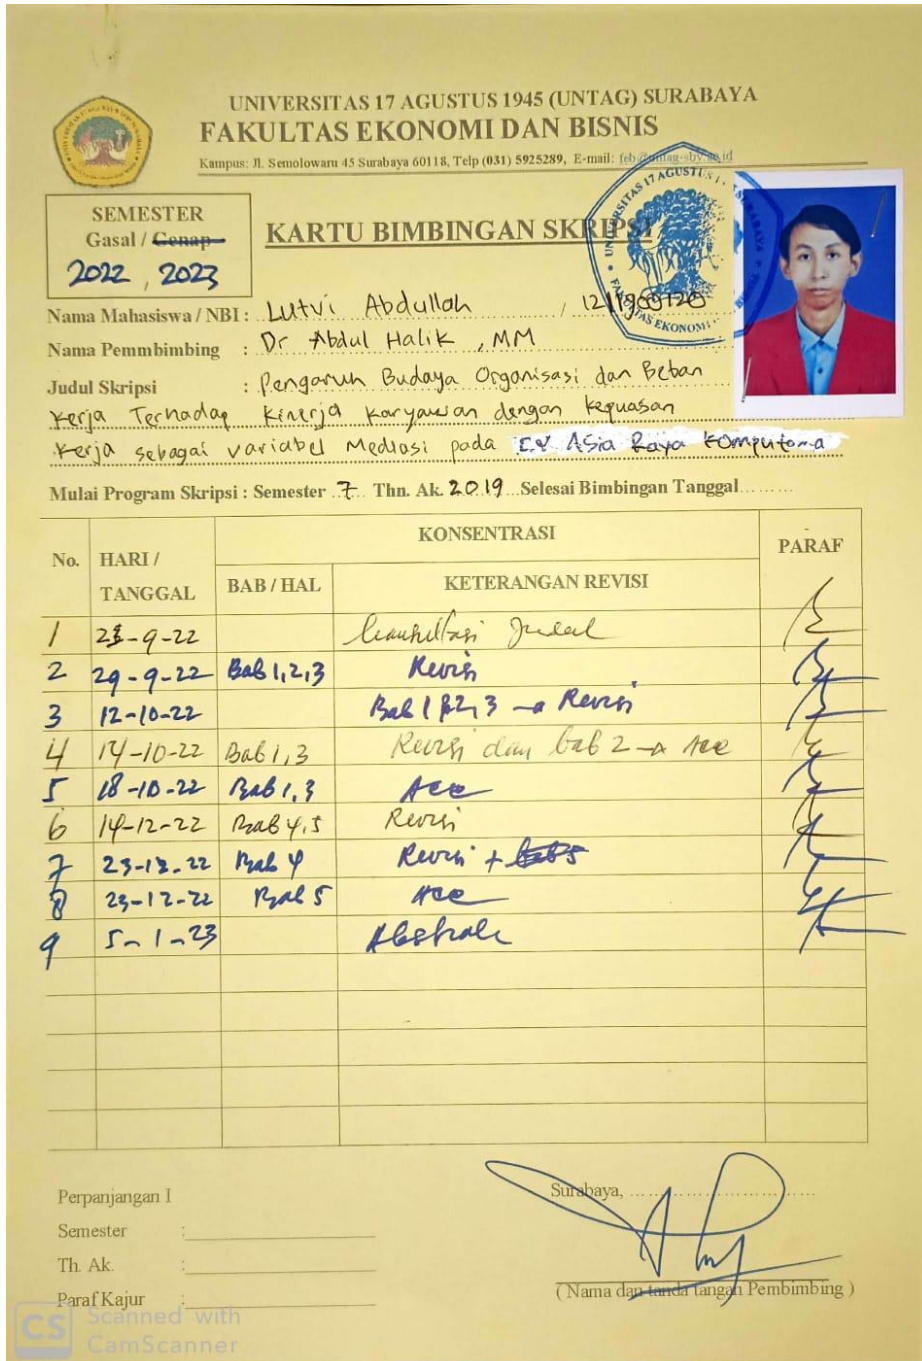 UNIVERSITAS 17 AGUSTUS 1945 (UNTAG) SURABAYA
FAKULTAS EKONOMI DAN BISNIS
Kampus: Jl. Semolowaru 45 Surabaya 60118, Telp (031) 5925289, E-mail: feb@untag-sby.ac.id
SEMESTER
Gasal / Genap
2022, 2023
KARTU BIMBINGAN SKRIPSI
Nama Mahasiswa / NBI : Lutvi Abdullah / 1211900120
Nama Pemmbimbing : Dr Abdul Halik, MM
Judul Skripsi : Pengaruh Budaya Organisasi dan Beban
Kerja Terhadap Kinerja Karyawan dengan Kepuasan
Kerja sebagai variabel Mediasi pada CV Asia Raya Komputama
Mulai Program Skripsi : Semester 7 Thn. Ak. 2019 Selesai Bimbingan Tanggal
No. HARI / TANGGAL KONSENTRASI PARAF
BAB / HAL KETERANGAN REVISI
1 23-9-22 Konsultasi Judul
2 29-9-22 Bab 1,2,3 Revisi
3 12-10-22 Bab 1 & 2, 3 → Revisi
4 14-10-22 Bab 1,3 Revisi dan bab 2 → Acc
5 18-10-22 Bab 1,3 Acc
6 14-12-22 Bab 4,5 Revisi
7 23-12-22 Bab 4 Revisi + bab 5
8 23-12-22 Bab 5 Acc
9 5-1-23 Abstrak
Perpanjangan I
Semester :
Th. Ak. :
Paraf Kajur :
Surabaya,
( Nama dan tanda tangan Pembimbing )
CS Scanned with
CamScanner